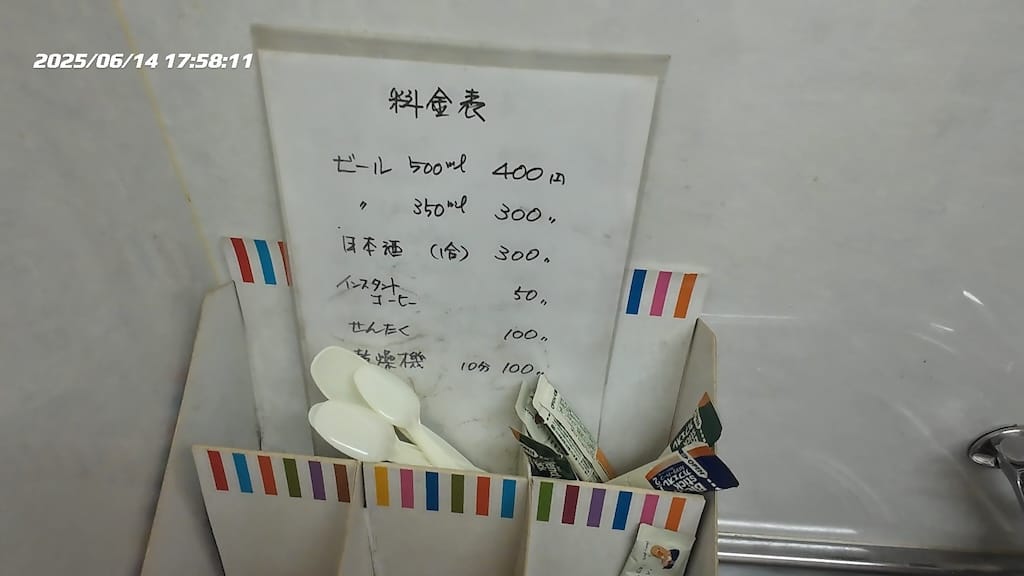 2025/06/14 17:58:11
料金表
ビール 500ml 400円
〃 350ml 300〃
日本酒 (1合) 300〃
インスタント
コーヒー 50〃
せんたく 100〃
乾燥機 10分 100〃